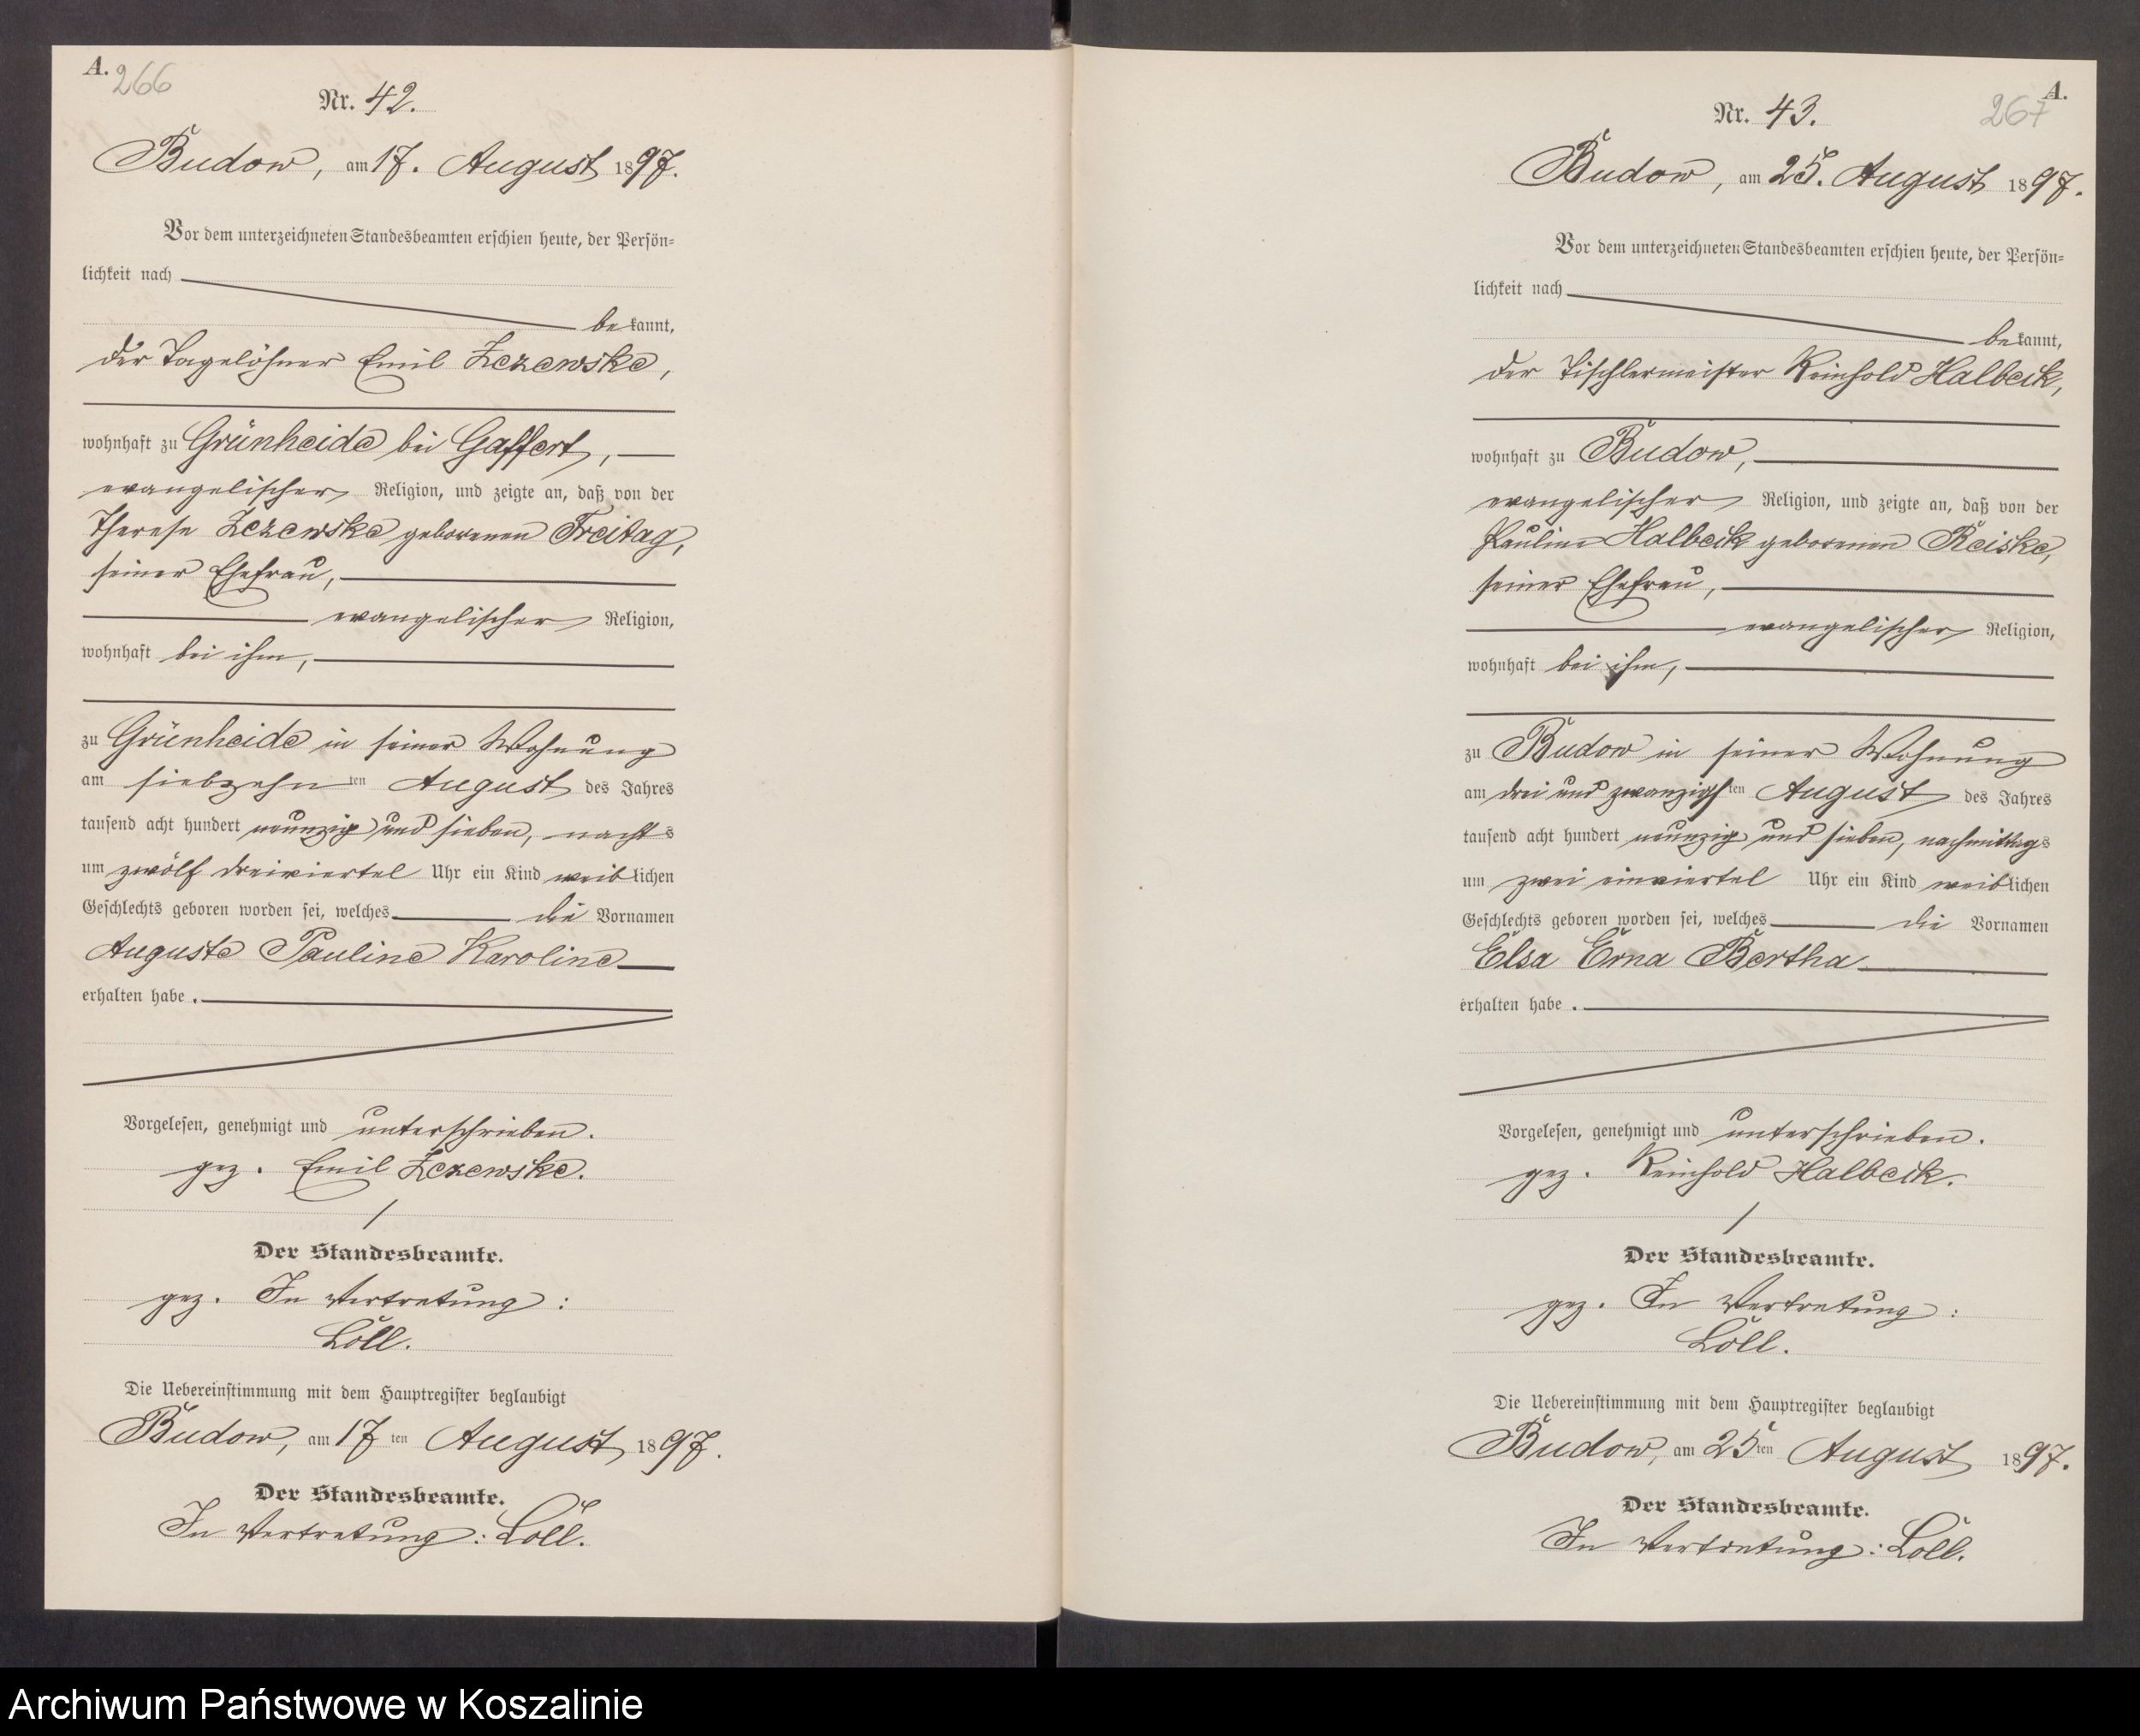 A.
266
Nr. 42.
Budow, am 17. August 1897.
Vor dem unterzeichneten Standesbeamten erschien heute, der Persön-
lichkeit nach
bekannt,
der Tagelöhner Emil Lezewske,
wohnhaft zu Grünheide bei Gaffert,
evangelischer Religion, und zeigte an, daß von der
Therese Lezewske geborenen Freitag,
seiner Ehefrau,
evangelischer Religion,
wohnhaft bei ihm,
zu Grünheide in seiner Wohnung
am siebzehnten August des Jahres
tausend acht hundert neunzig und sieben, nachts
um zwölf dreiviertel Uhr ein Kind weiblichen
Geschlechts geboren worden sei, welches die Vornamen
Auguste Pauline Karoline
erhalten habe.
Vorgelesen, genehmigt und unterschrieben.
gez. Emil Lezewske.
Der Standesbeamte.
gez. In Vertretung:
Löll.
Die Uebereinstimmung mit dem Hauptregister beglaubigt
Budow, am 17ten August 1897.
Der Standesbeamte.
In Vertretung: Löll.
A.
267
Nr. 43.
Budow, am 25. August 1897.
Vor dem unterzeichneten Standesbeamten erschien heute, der Persön-
lichkeit nach
bekannt,
der Tischlermeister Reinhold Halbeck,
wohnhaft zu Budow,
evangelischer Religion, und zeigte an, daß von der
Pauline Halbeck geborenen Reiske,
seiner Ehefrau,
evangelischer Religion,
wohnhaft bei ihm,
zu Budow in seiner Wohnung
am drei und zwanzigsten August des Jahres
tausend acht hundert neunzig und sieben, nachmittags
um zwei einviertel Uhr ein Kind weiblichen
Geschlechts geboren worden sei, welches die Vornamen
Elsa Erna Bertha
erhalten habe.
Vorgelesen, genehmigt und unterschrieben.
gez. Reinhold Halbeck.
Der Standesbeamte.
gez. In Vertretung:
Löll.
Die Uebereinstimmung mit dem Hauptregister beglaubigt
Budow, am 25ten August 1897.
Der Standesbeamte.
In Vertretung: Löll.
Archiwum Państwowe w Koszalinie